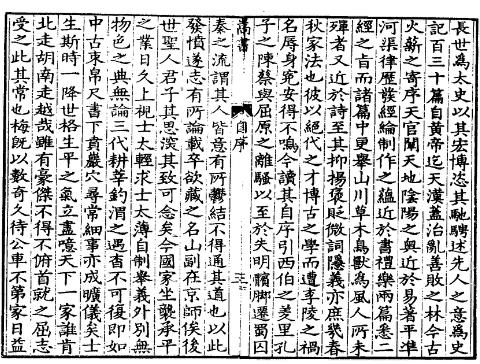 長世為太史以其宏博恣其馳騁述先人之意為史
記百三十篇自黃帝迄天漢蓋治亂善敗之林今古
火薪之寄序天官關天地陰陽之奧近於易著平準
河渠律歷發經綸制作之蘊近於書禮樂兩篇悉二
經之旨而諸篇中更舉山川草木鳥獸為風人所未
殫者又近於詩至其抑揚褒貶微詞隱義亦庶幾春
秋家法也彼以絕代之才博古之學而遭李陵之禍
名辱身寃安得不鳴今讀其自序引西伯之羑里孔
子之陳蔡與屈原之離騷以至於失明臏脚遷蜀囚
嵩書
自序
秦之流謂其人皆意有所鬱結不得通其道也以此
發憤遂志有所論載卒欲藏之名山副在京師俟後
世聖人君子其思深其致可念矣今國家坐襲承平
之業日久上視士太輕求士太薄自制舉義外別無
物色之典無論三代耕莘釣渭之遇杳不可復即如
中古束帛尺書下賁巖穴尋常細事亦成曠儀矣士
生斯時一降世格生平之氣立盡噫天下一家誰肯
北走胡南走越哉雖有豪傑不得不俯首就之屈志
受之此其常也梅既以數奇久待公車不第家日益